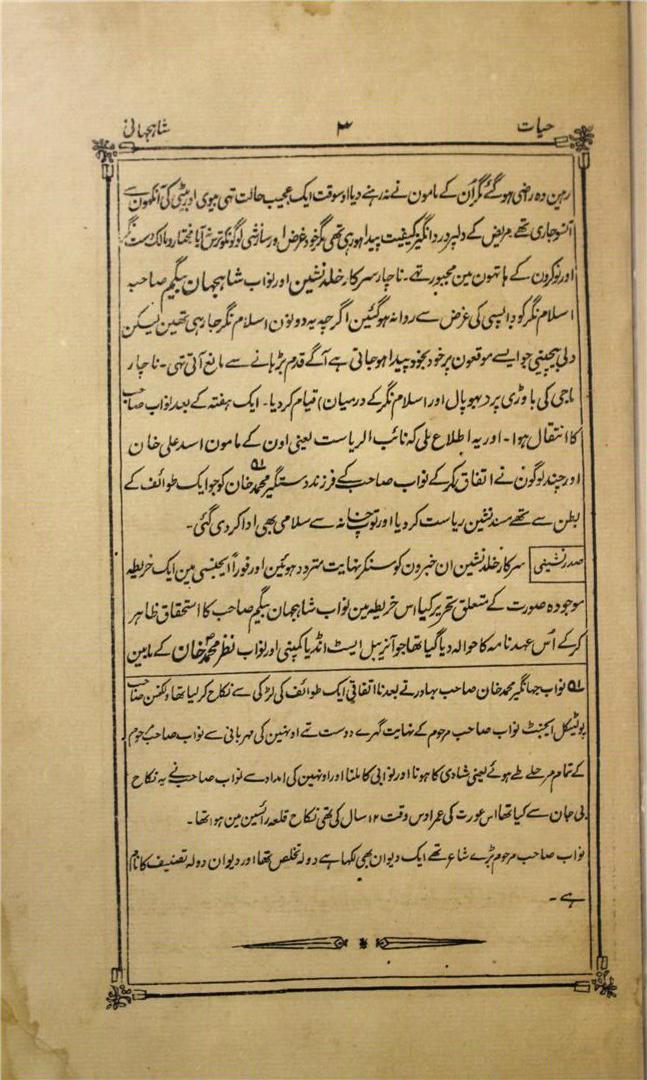 حیات ۳ شاہجہانی
رہین وہ رضی ہو گئے مگر اُن کے مامون نے نہ رہنے دیا اوسوقت ایک عجیب حالت تہی بیوی اور بیٹی کی آنکہون سے
آنسو جاری تھے مریض کے دلپر درد انگیز کیفیت پیدا ہو رہی تھی مگر خود غرض اور سازشی لوگونکو ترس نہ آیا مختار و مالک دست نگر
اور نوکرون کے ہاتہون مین مجبور تھے۔ ناچار سرکار خلد نشین اور نواب شاہجہان بیگم صاحبہ
اسلام نگر کو واپسی کی غرض سے روانہ ہوگئین اگرچہ یہ دونون اسلام نگر جا رہی تھین لیکن
دلی بیچینی جو ایسے موقعون پر خود بخود پیدا ہو جاتی ہے آگے قدم بڑہانے سے مانع آتی تہی۔ ناچار
ماجی کی باوڑی پر (بہوپال اور اسلام نگر کے درمیان) قیام کر دیا۔ ایک ہفتہ کے بعد نواب صاحب
کا انتقال ہوا۔ اور یہ اطلاع ملی کہ نائب الریاست یعنی اون کے مامون اسد علی خان
اور چند لوگون نے اتفاق کرکے نواب صاحب کے فرزند دستگیر محمد خان کو جو ایک طوائف کے
بطن سے تھے مسند نشین ریاست کر دیا اور توپخانہ سے سلامی بھی ادا کر دی گئی۔
صدر نشینی سرکار خلد نشین ان خبرون کو سنکر نہایت متردد ہوئین اور فوراً ایجنسی مین ایک خریطہ
موجودہ صورت کے متعلق تحریر کیا اس خریطہ مین نواب شاہجہان بیگم صاحب کا استحقاق ظاہر
کرکے اُس عہدنامہ کا حوالہ دیا گیا تھا جو آنریبل ایسٹ انڈیا کمپنی اور نواب نظر محمد خان کے مابین
نواب جہانگیر محمد خان صاحب بہادر نے بعد نا اتفاقی ایک طوائف کی لڑکی سے نکاح کر لیا تھا ولکنسن صاحب
پولٹیکل ایجنٹ نواب صاحب مرحوم کے نہایت گہرے دوست تھے اونہین کی مہربانی سے نواب صاحب مرحوم
کے تمام مرحلے طے ہوئے یعنی شادی کا ہونا اور نوابی کا ملنا اور اونہین کی امداد سے نواب صاحب نے یہ نکاح
بی جان سے کیا تھا اس عورت کی عمر اوس وقت ۱۲ سال کی تھی نکاح قلعہ رائسین مین ہوا تھا۔
نواب صاحب مرحوم بڑے شاعر تھے ایک دیوان بھی لکہا ہے دولہ تخلص تھا اور دیوان دولہ تصنیف کا نام
ہے۔